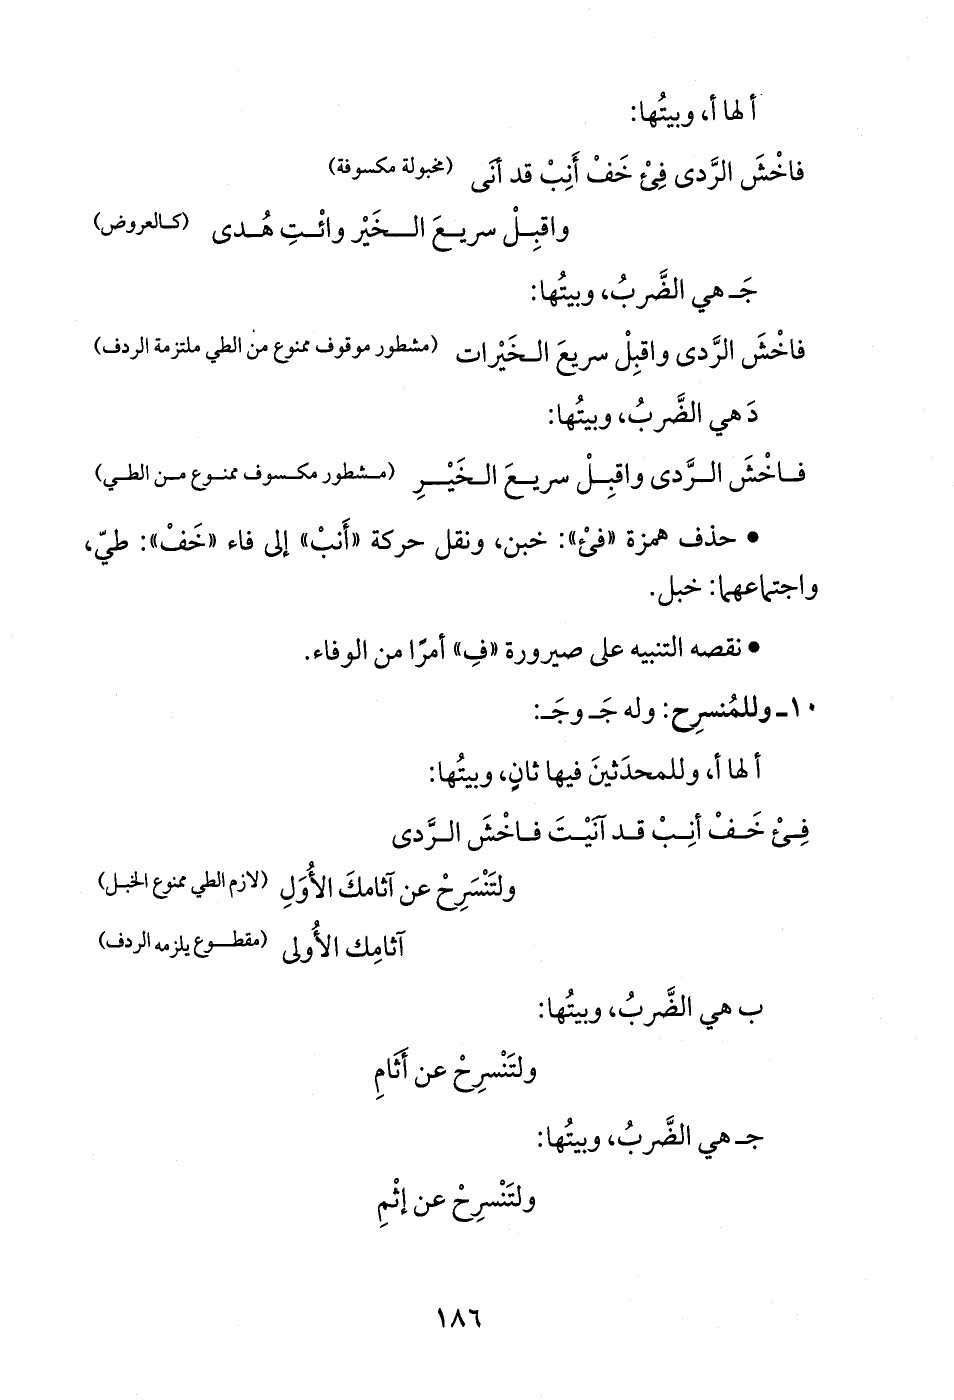 أ لها أ، وبيتُها:
فاخْشَ الرَّدى فِئْ خَفْ أَنِبْ قد أنَى (مخبولة مكسوفة)
واقبِلْ سريعَ الخَيْر وائْتِ هُدى (كالعروض)
جَـ هي الضَّربُ، وبيتُها:
فاخْشَ الرَّدى واقبِلْ سريعَ الخَيْرات (مشطور موقوف ممنوع من الطي ملتزمة الردف)
دَ هي الضَّربُ، وبيتُها:
فاخْشَ الرَّدى واقبِلْ سريعَ الخَيْرِ (مشطور مكسوف ممنوع من الطي)
• حذف همزة «فئْ»: خبن، ونقل حركة «أَنبْ» إلى فاء «خَفْ»: طيّ،
واجتماعهما: خبل.
• نقصه التنبيه على صيرورة «فِ» أمرًا من الوفاء.
١٠ـ وللمُنسرِح: وله جَـ وجَـ:
أ لها أ، وللمحدَثينَ فيها ثانٍ، وبيتُها:
فِئْ خَفْ أنِبْ قد آنَيْتَ فاخْشَ الرَّدى
ولتَنْسَرِحْ عن آثامكَ الأُوَلِ (لازم الطي ممنوع الخبل)
آثامِك الأُولى (مقطوع يلزمه الردف)
ب هي الضَّربُ، وبيتُها:
ولتَنْسرِحْ عن أَثَامِ
جـ هي الضَّربُ، وبيتُها:
ولتَنْسرِحْ عن إثْمِ
١٨٦